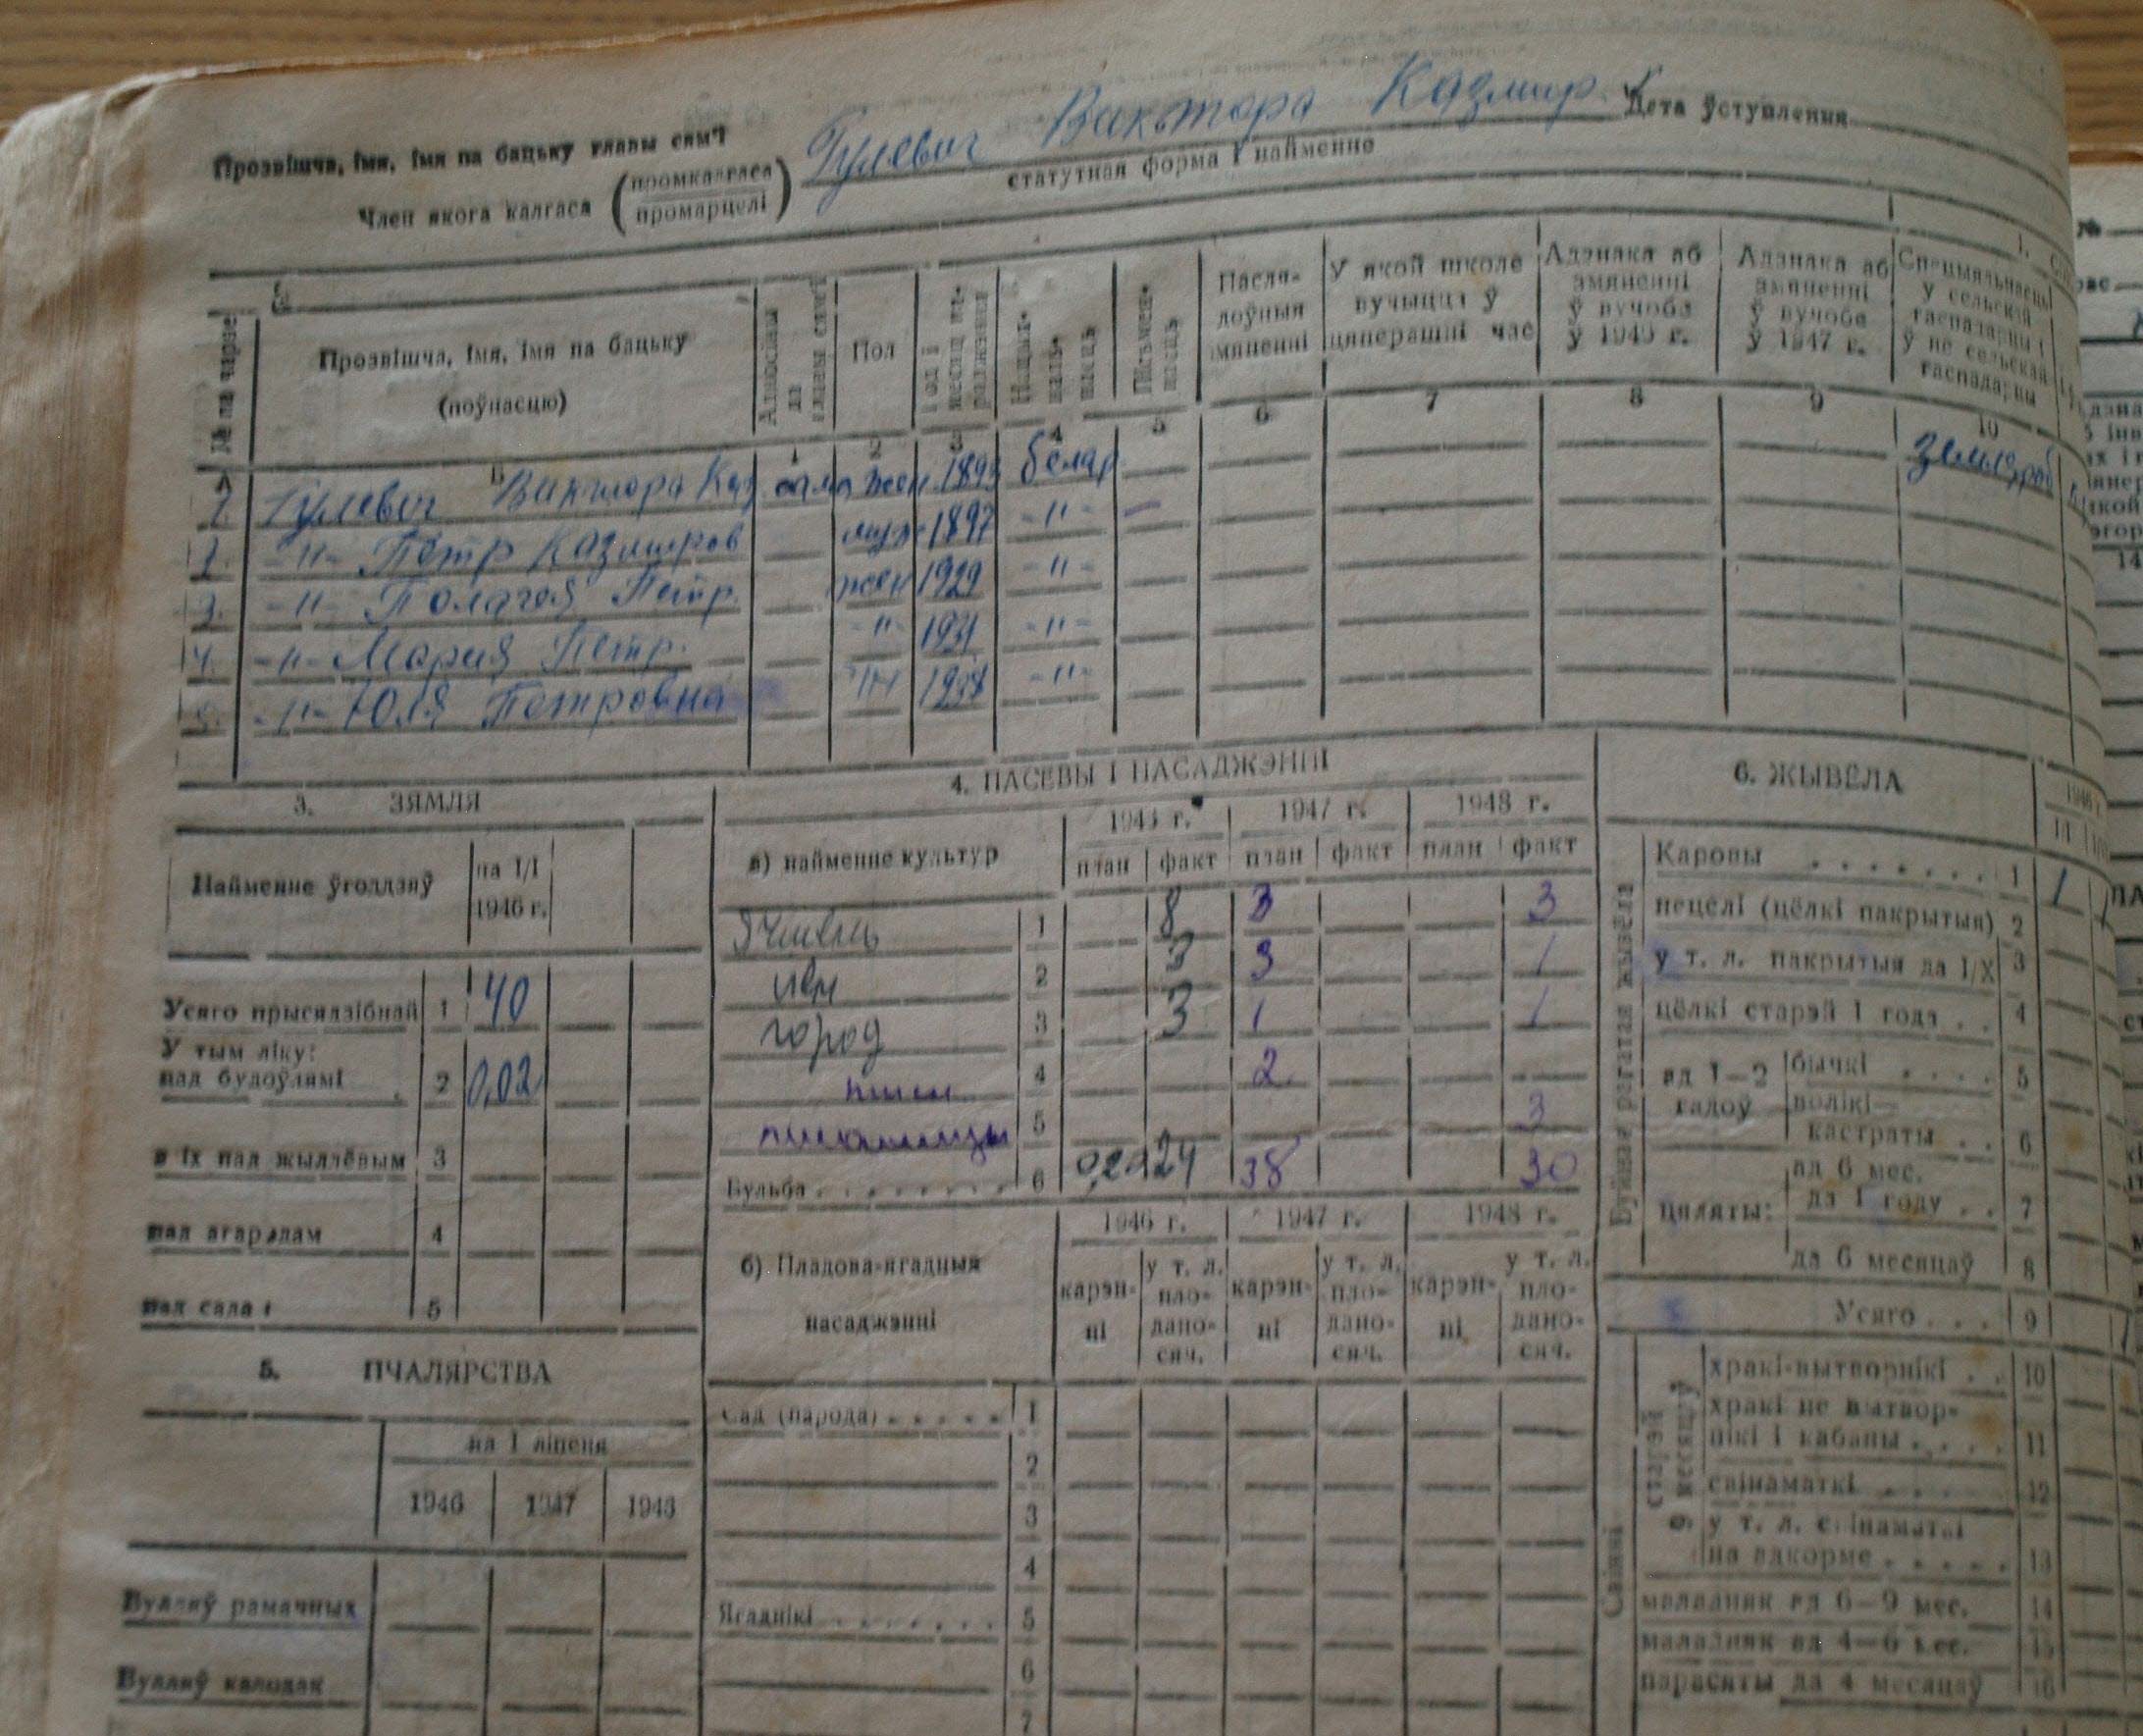 Прозвішча, імя, імя па бацьку главы сям'і Гулевич Виктора Казмир. Дата ўступлення
Член якога калгаса (промкалгаса промарцелі)
статутная форма і найменне
№№ па чарзе
Прозвішча, імя, імя па бацьку (поўнасцю)
Адносіны да главы сям'і
Пол
Год і месяц нараджэння
Нацыянальнасць
Пісьменнасць
Пасля- доўныя змяненні
У якой школе вучыцца ў цяперашні час
Адзнака аб змяненні ў вучобе ў 1946 г.
Адзнака аб змяненні ў вучобе ў 1947 г.
Спецыяльнасць у сельскай гаспадарцы і ў не сельскай гаспадарцы
1 2 3 4 5 6 7 8 9 10
1. Гулевич Виктора Каз сама жен 1893 белар Земляроб
2. -"- Петр Казимров муж 1897 -"- —
3. -"- Полагея Петр. жен 1929 -"-
4. -"- Мария Петр. -"- 1931 -"-
5. -"- Юля Петровна -"- 1938 -"-
3. ЗЯМЛЯ
Найменне ўгоддзяў
на I/I 1946 г.
Усяго прысядзібнай 1 40
У тым ліку:
пад будоўлямі 2 0,02
з іх пад жыллёвым 3
пад агародам 4
пад садам 5
5. ПЧАЛЯРСТВА
на 1 ліпеня
1946 1947 1948
Вулляў рамачных
Вулляў калодак
4. ПАСЕВЫ І НАСАДЖЭННІ
а) найменне культур
1946 г. 1947 г. 1948 г.
план факт план факт план факт
ячмень 1 8 3 3
лен 2 3 3 1
город 3 3 1 1
4 2
пшаницы 5 3
Бульба 6 24 38 30
б) Пладова-ягадныя насаджэнні
1946 г. 1947 г. 1948 г.
карэн- ні у т. л. пло- дано- сяч. карэн- ні у т. л. пло- дано- сяч. карэн- ні у т. л. пло- дано- сяч.
Сад (парода) 1
2
3
4
Ягаднікі 5
6
7
6. ЖЫВЁЛА
Буйная рагатая жывёла
Каровы 1 1
нецелі (цёлкі пакрытыя) 2
у т. л. пакрытыя да I/X 3
цёлкі старэй 1 года 4
ад 1—2 гадоў
бычкі 5
волікі—
кастраты 6
цяляты:
ад 6 мес.
да 1 году 7
да 6 месяцаў 8
Усяго 9
Свінні
старэй 9 месяцаў
хракі-вытворнікі 10
хракі не вытвор-
нікі і кабаны 11
свінаматкі 12
у т. л. свінаматкі
на адкорме 13
маладняк ад 6—9 мес. 14
маладняк ад 4—6 мес. 15
парасяты да 4 месяцаў 16